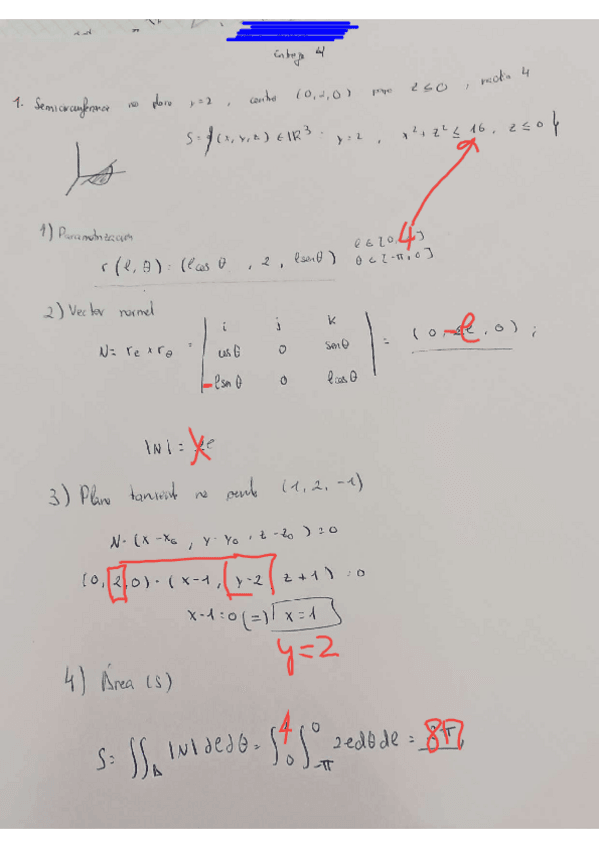 Entrega 4
1. Semicircunferencia no plano y=2, centro (0,2,0) para z≤0, radio 4
S={(x,y,z) ∈ ℝ³ : y=2, x²+z² ≤ 16, z≤0}
1) Parametrización
r(ρ,θ) : (ρcosθ, 2, ρsenθ) ρ ∈ [0,4]
θ ∈ [-π,0]
2) Vector normal
i j k
N= rρ × rθ = cosθ 0 senθ = (0,-ρ,0);
-ρsenθ 0 ρcosθ
|N| =
3) Plano tanxente no punto (1,2,-1)
N·(x-x₀, y-y₀, z-z₀)=0
(0,2,0)·(x-1, y-2, z+1)=0
x-1=0 (=) x=1
y=2
4) Área (S)
S= ∬ |N| dρdθ = ∫₀⁴ ∫₋π⁰ 2ρdθdρ = 8π